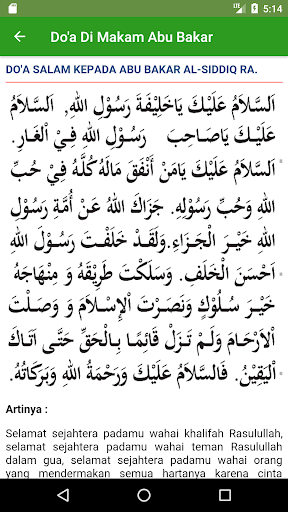 5:14
Do'a Di Makam Abu Bakar
DO'A SALAM KEPADA ABU BAKAR AL-SIDDIQ RA.
اَلسَّلاَمُ عَلَيْكَ يَاخَلِيْفَةَ رَسُوْلِ اللهِ، اَلسَّلاَمُ
عَلَيْكَ يَاصَاحِبَ رَسُوْلِ اللهِ فِيْ الْغَارِ.
اَلسَّلاَمُ عَلَيْكَ يَامَنْ أَنْفَقَ مَالَهُ كُلَّهُ فِيْ حُبِّ
اللهِ وَحُبِّ رَسُوْلِهِ. جَزَاكَ اللهُ عَنْ أُمَّةِ رَسُوْلِ
اللهِ خَيْرَ الْجَزَاءِ.وَلَقَدْ خَلَفْتَ رَسُوْلَ اللهِ
اَحْسَنَ الْخَلَفِ. وَسَلَكْتَ طَرِيْقَهُ وَ مِنْهَاجَهُ
خَيْرَ سُلُوْكٍ وَنَصَرْتَ اْلإِسْلاَمَ وَ وَصَلْتَ
اْلاَرْحَامَ وَلَمْ تَزَلْ قَائِمًا بِالْحَقِّ حَتَّى اَتَاكَ
الْيَقِيْنُ. فَالسَّلاَمُ عَلَيْكَ وَرَحْمَةُ اللهِ وَبَرَكَاتُهُ.
Artinya :
Selamat sejahtera padamu wahai khalifah Rasulullah,
selamat sejahtera padamu wahai teman Rasulullah
dalam gua, selamat sejahtera padamu wahai orang
yang mendermakan semua hartanya karena cinta